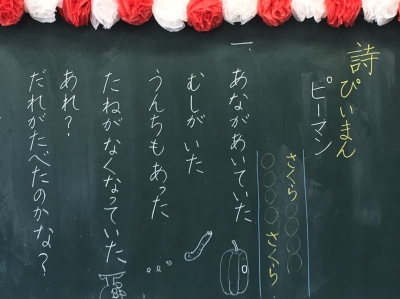 詩 ぴいまん
ピーマン
さくら○○○○○
○○○○○さくら
一、あながあいていた
むしが いた
うんちもあった
たねがなくなっていた
あれ?
だれがたべたのかな?